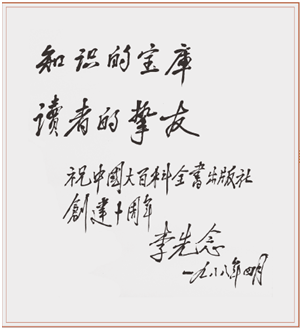 知识的宝庫
讀者的挚友
祝中國大百科全書出版社
創建十周年
李先念
一九八八年四月